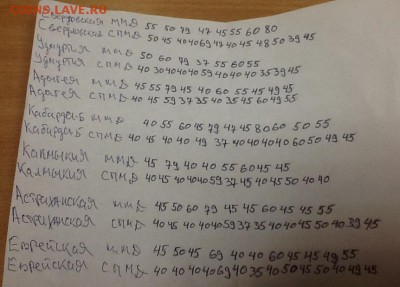 Свердловская ММД 55 50 79 47 45 55 60 80
Свердловская СПМД 50 45 40 40 69 47 40 45 48 50 39 45
Удмуртия ММД 50 60 79 37 55 60 55
Удмуртия СПМД 40 30 40 40 40 59 40 40 40 35 39 45
Адыгея ММД 45 55 79 45 40 60 55 45 49 45
Адыгея СПМД 40 45 59 37 35 40 35 45 60 49 55
Кабард-Б ММД 40 55 60 45 79 47 45 80 60 50 55
Кабард-Б СПМД 40 45 40 40 49 37 40 40 40 40 60 50 49 45
Калмыкия ММД 45 79 40 40 55 60 45 45
Калмыкия СПМД 40 45 40 40 59 37 45 40 45 50 40 40
Астраханская ММД 45 50 60 79 45 45 60 45 45 55
Астраханская СПМД 40 45 40 40 40 59 37 35 40 40 45 50 40 39 45
Еврейская ММД 45 50 45 69 40 40 60 45 45 49 55
Еврейская СПМД 40 40 40 40 69 40 35 40 50 45 50 40 49 45